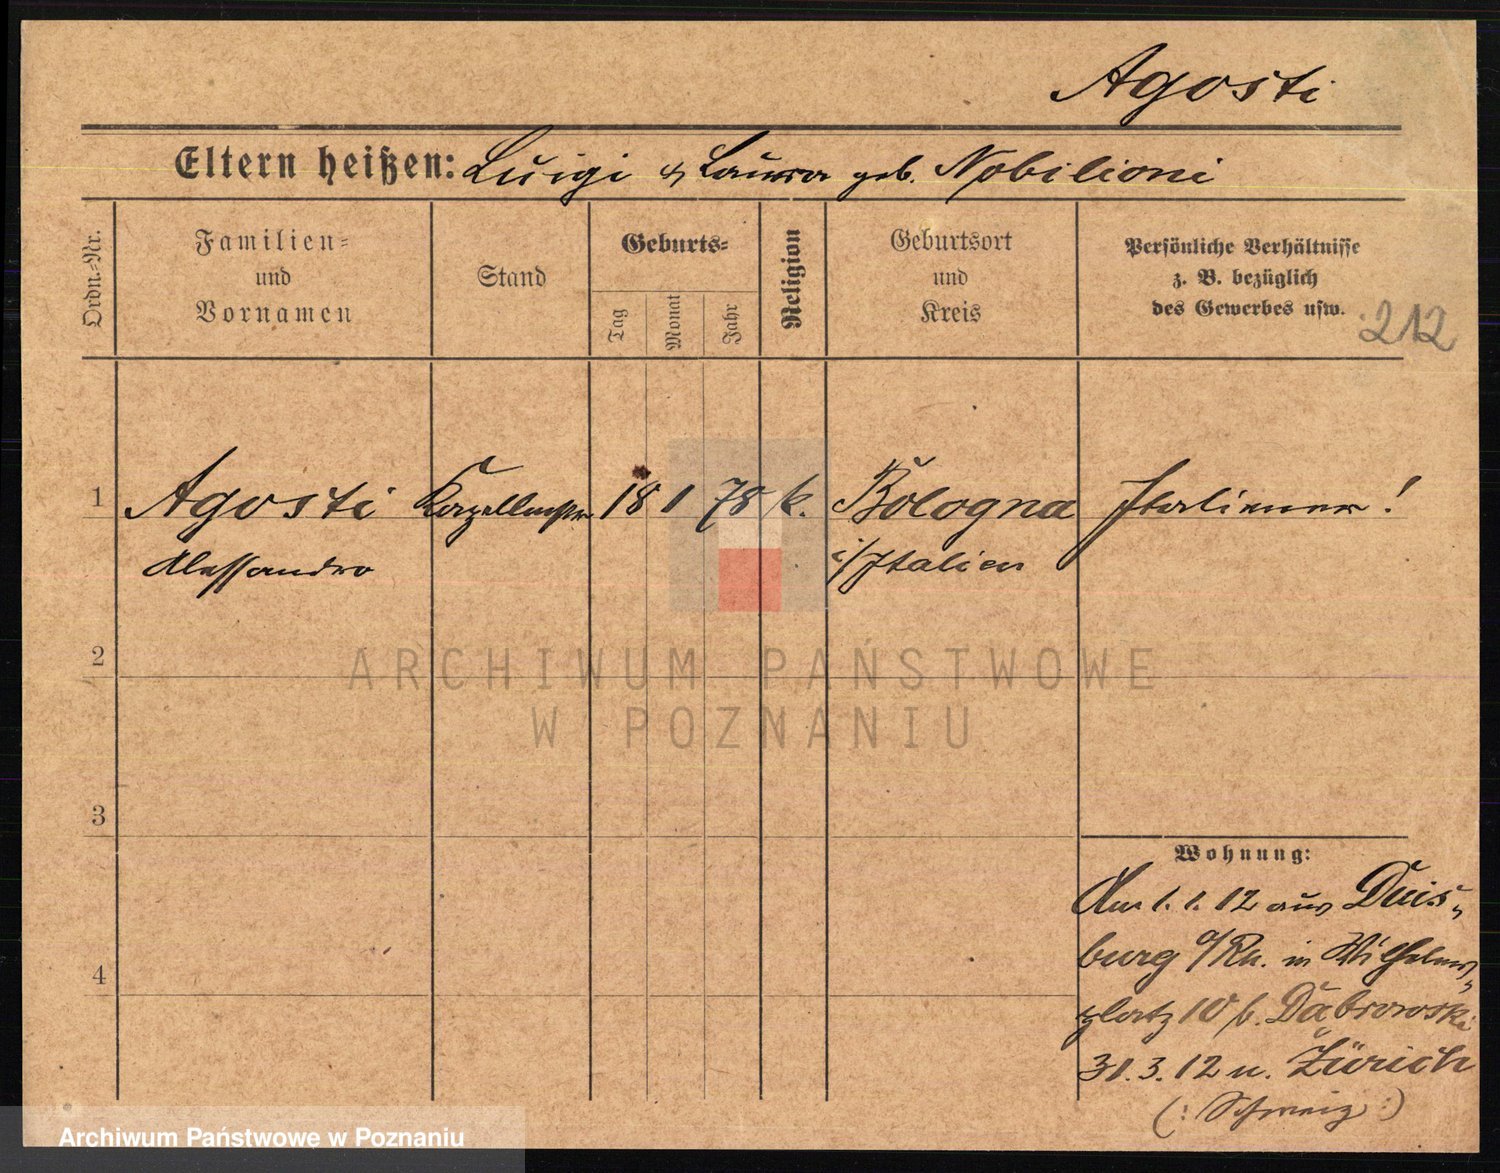 Agosti
Eltern heißen: Luigi & Laura geb. Nobilioni
Ordn.-Nr.
Familien-
und
Vornamen
Stand
Geburts-
Tag
Monat
Jahr
Religion
Geburtsort
und
Kreis
Persönliche Verhältnisse
z. B. bezüglich
des Gewerbes usw.
212
1 Agosti Kapellmstr 18 1 78 k. Bologna Italiener!
Alessandro i/Italien
2
ARCHIWUM PAŃSTWOWE
W POZNANIU
3
Wohnung:
Am 1. 1. 12 aus Duis-
burg a/Rh. in Wilhelms-
4
platz 10 b. Dąbrowski
31. 3. 12 n. Zürich
(: Schweiz :)
Archiwum Państwowe w Poznaniu